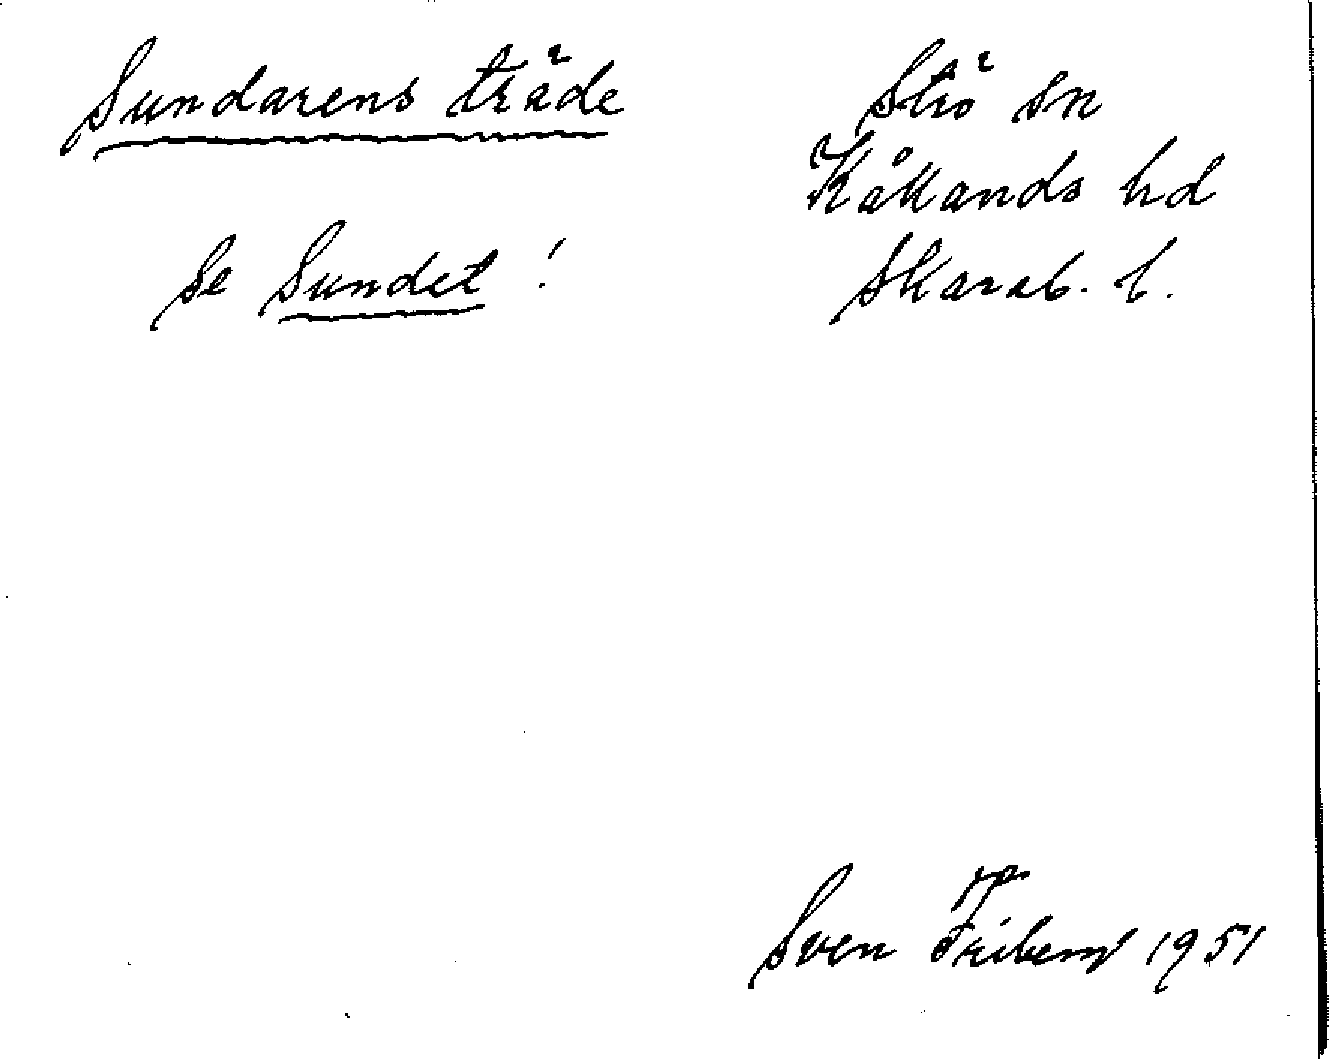 Sundarens träde
Strö sn
Kållands hd
Se Sundet!
Skarab. l.
Sven Friberg 1951